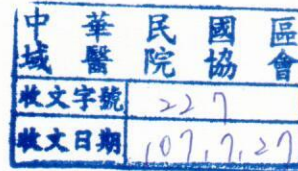 中華民國區
域醫院協會
收文字號 227
收文日期 107.7.27